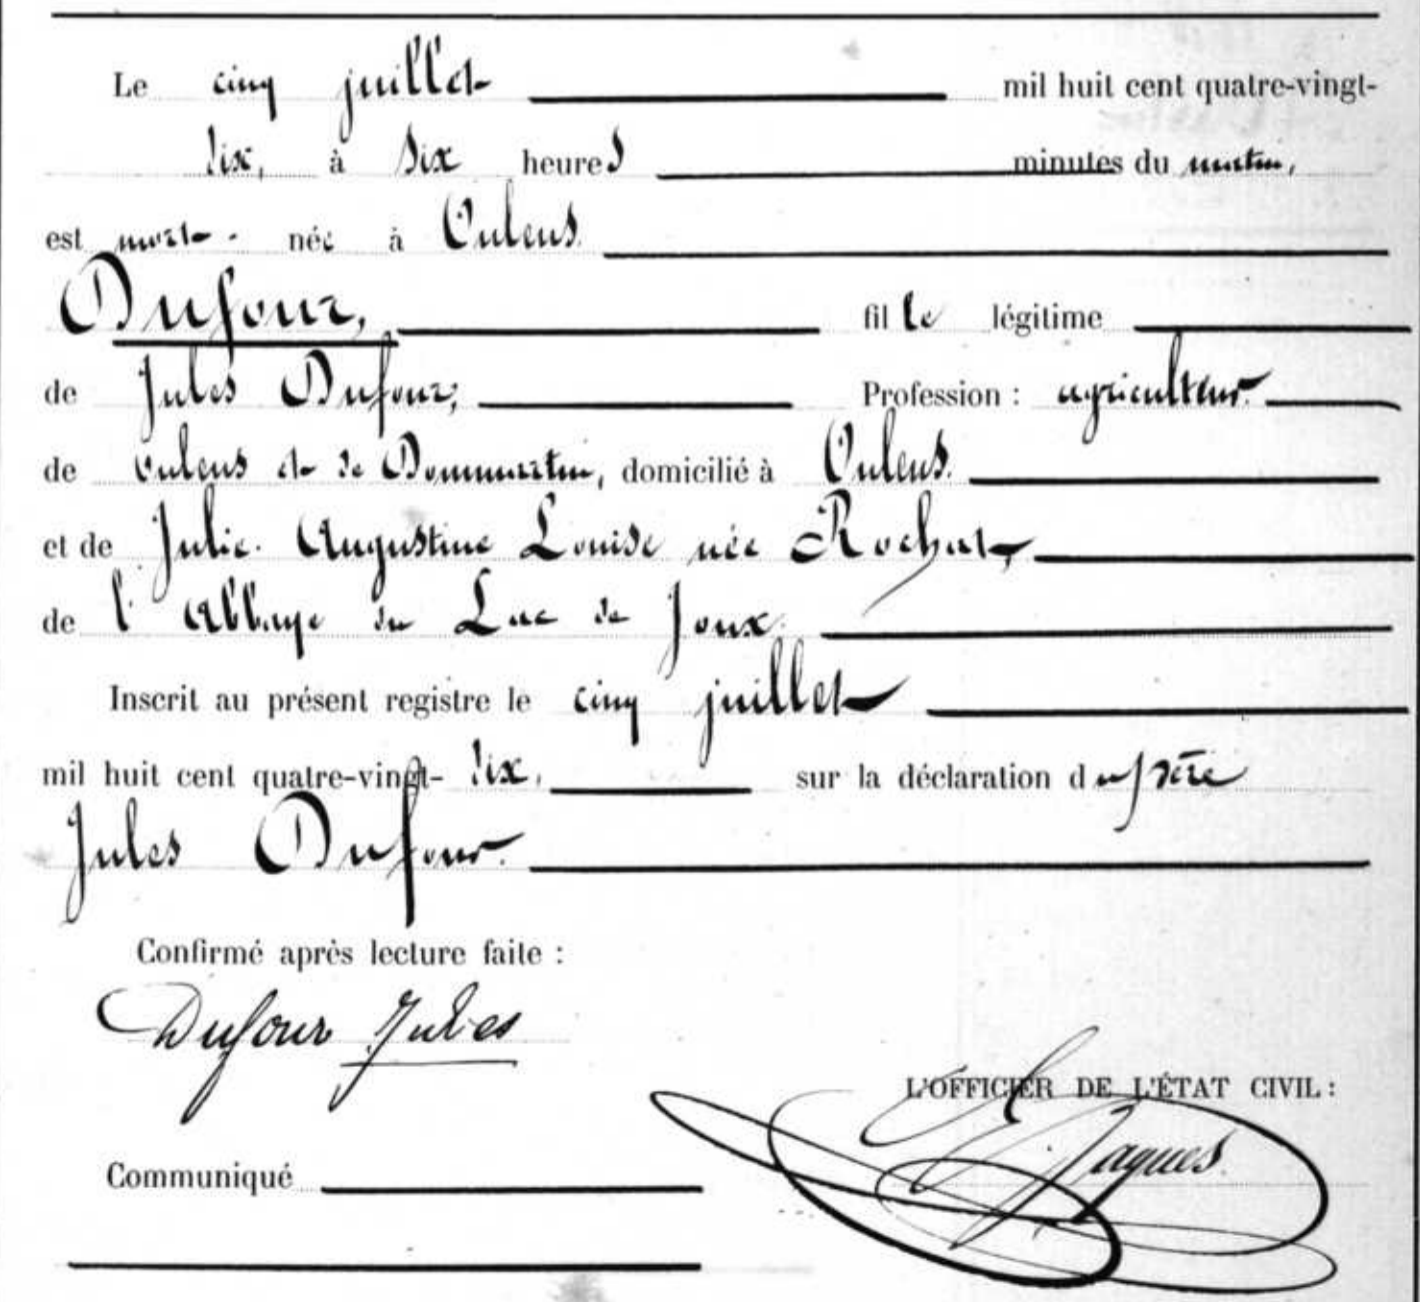 Le cinq juillet mil huit cent quatre-vingt-
dix, à six heures minutes du matin,
est mort- née à Oulens
Dufour, fille légitime
de Jules Dufour, Profession : agriculteur
de Oulens et de Dommartin, domicilié à Oulens.
et de Julie Augustine Louise née Rochat,
de l'Abbaye du Lac de Joux.
Inscrit au présent registre le cinq juillet
mil huit cent quatre-vingt-dix, sur la déclaration du père
Jules Dufour.
Confirmé après lecture faite :
Dufour Jules
L'OFFICIER DE L'ÉTAT CIVIL :
Jaques
Communiqué